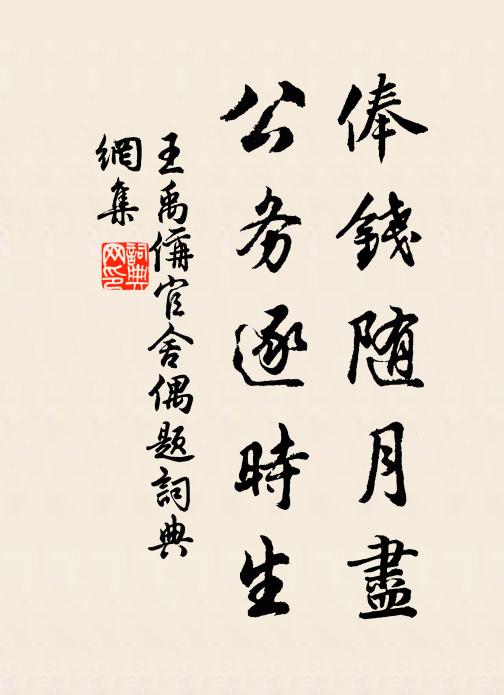 俸錢随月盡
公务逐時生
王禹偁官舍偶題詞典
網集
詞典网印